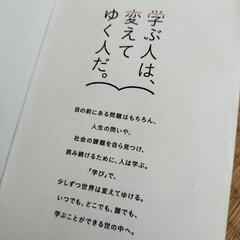 学ぶ人は、
変えて
ゆく人だ。
目の前にある問題はもちろん、
人生の問いや、
社会の課題を自ら見つけ、
挑み続けるために、人は学ぶ。
「学び」で、
少しずつ世界は変えてゆける。
いつでも、どこでも、誰でも、
学ぶことができる世の中へ。